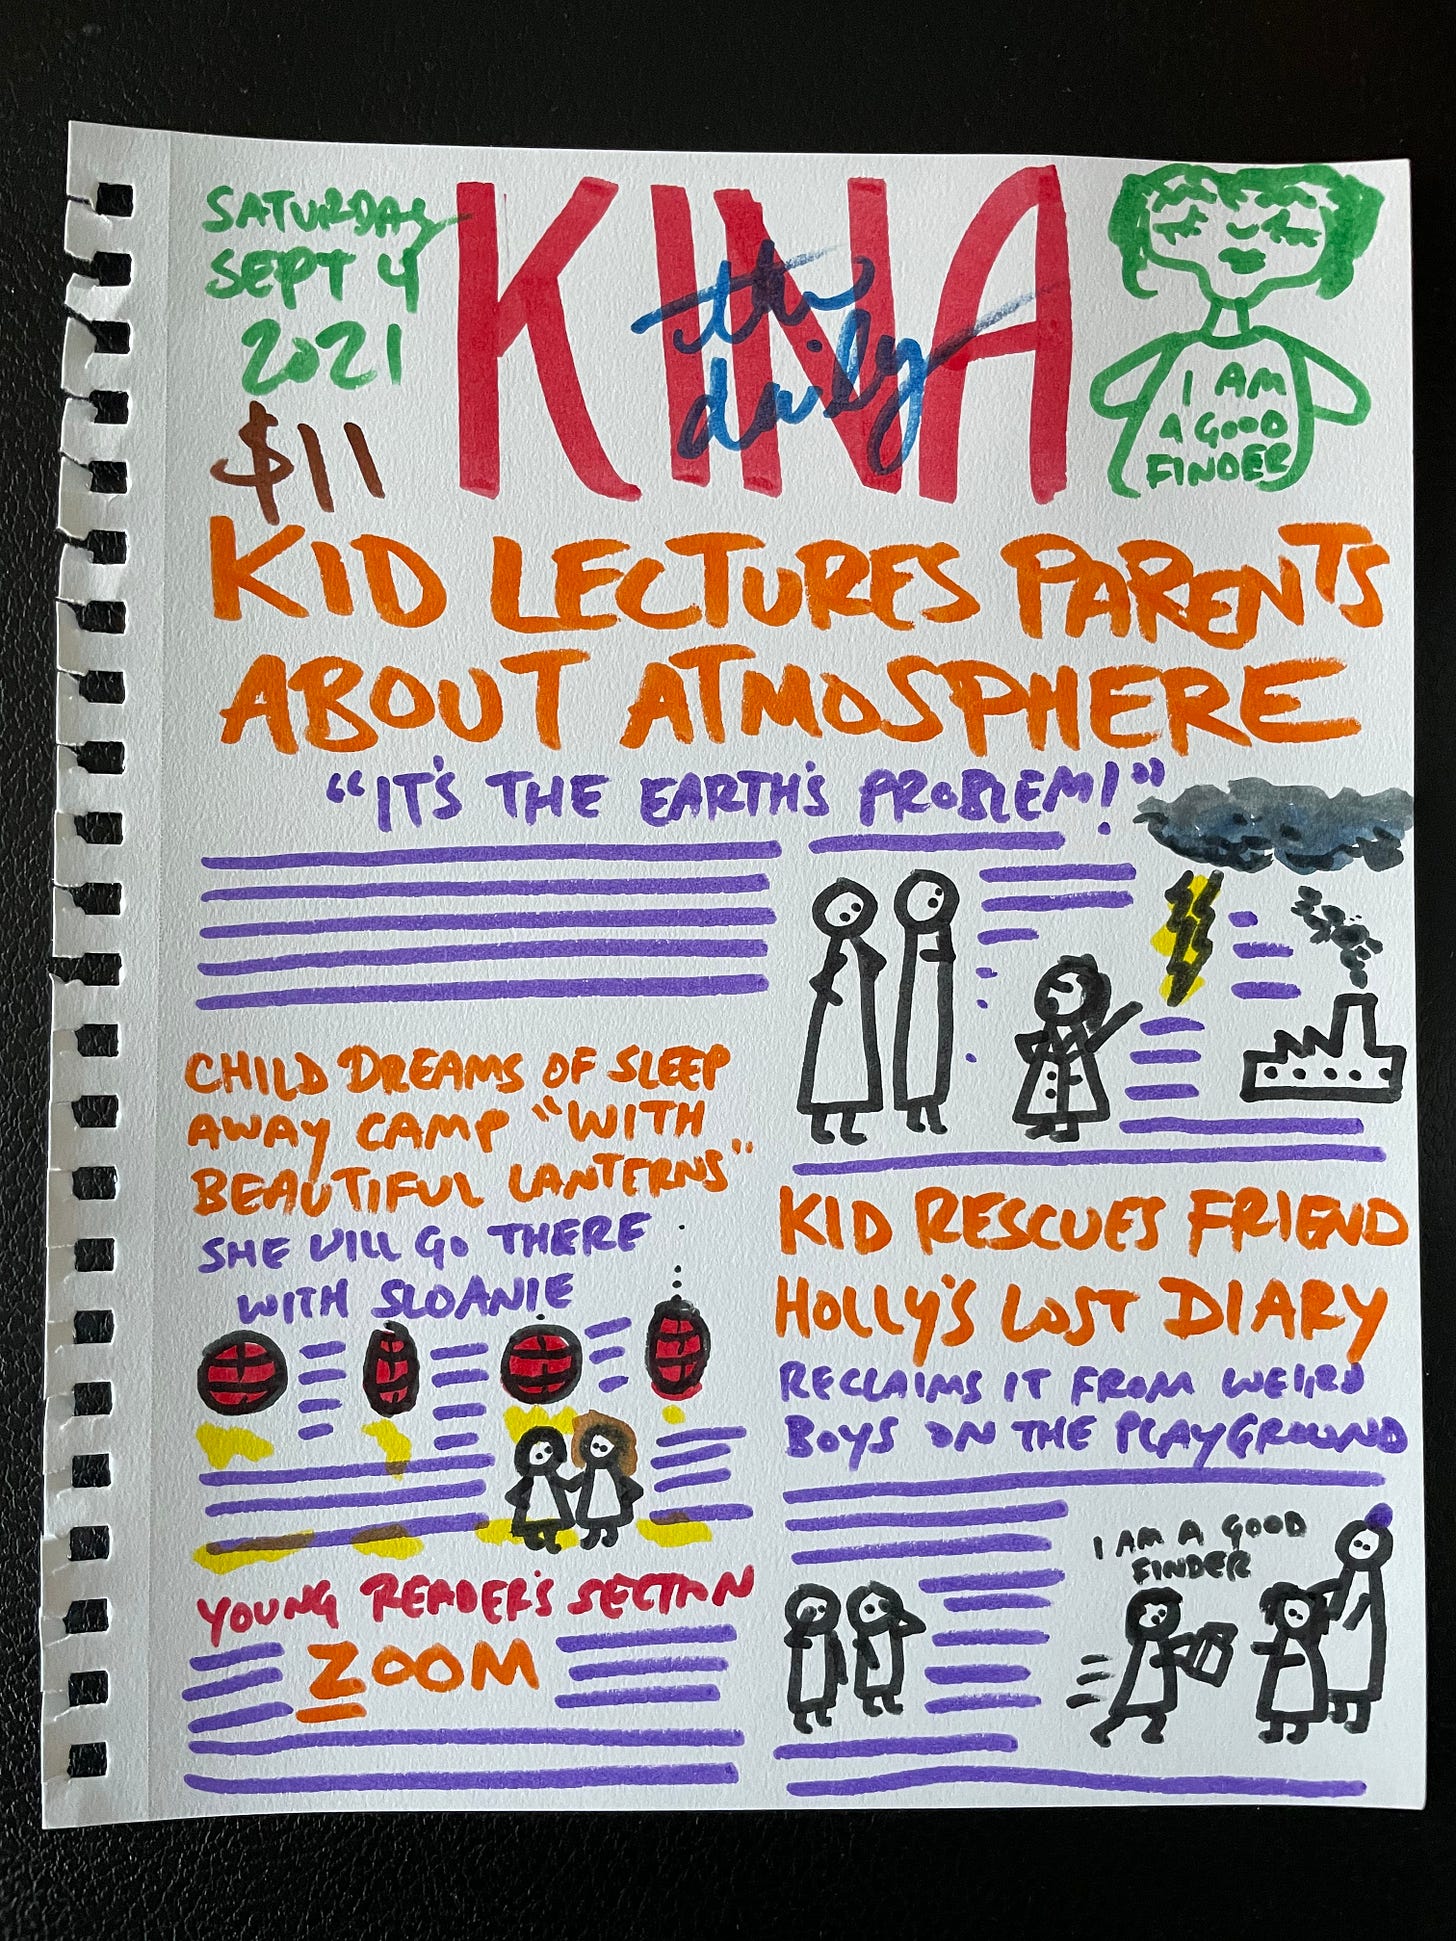 SATURDAY
SEPT 4
2021
$11
KINA
the
daily
I AM
A GOOD
FINDER
KID LECTURES PARENTS
ABOUT ATMOSPHERE
"IT'S THE EARTH'S PROBLEM!"
CHILD DREAMS OF SLEEP
AWAY CAMP "WITH
BEAUTIFUL LANTERNS"
SHE WILL GO THERE
WITH SLOANIE
KID RESCUES FRIEND
HOLLY'S LOST DIARY
RECLAIMS IT FROM WEIRD
BOYS ON THE PLAYGROUND
I AM A GOOD
FINDER
YOUNG READER'S SECTION
ZOOM